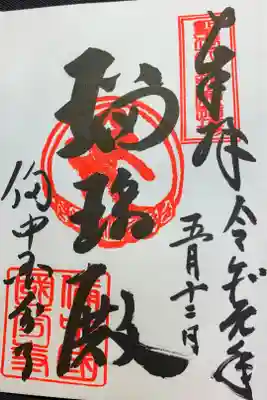 奉拝
令和元年
五月十二日
瑠璃殿
備中国分寺